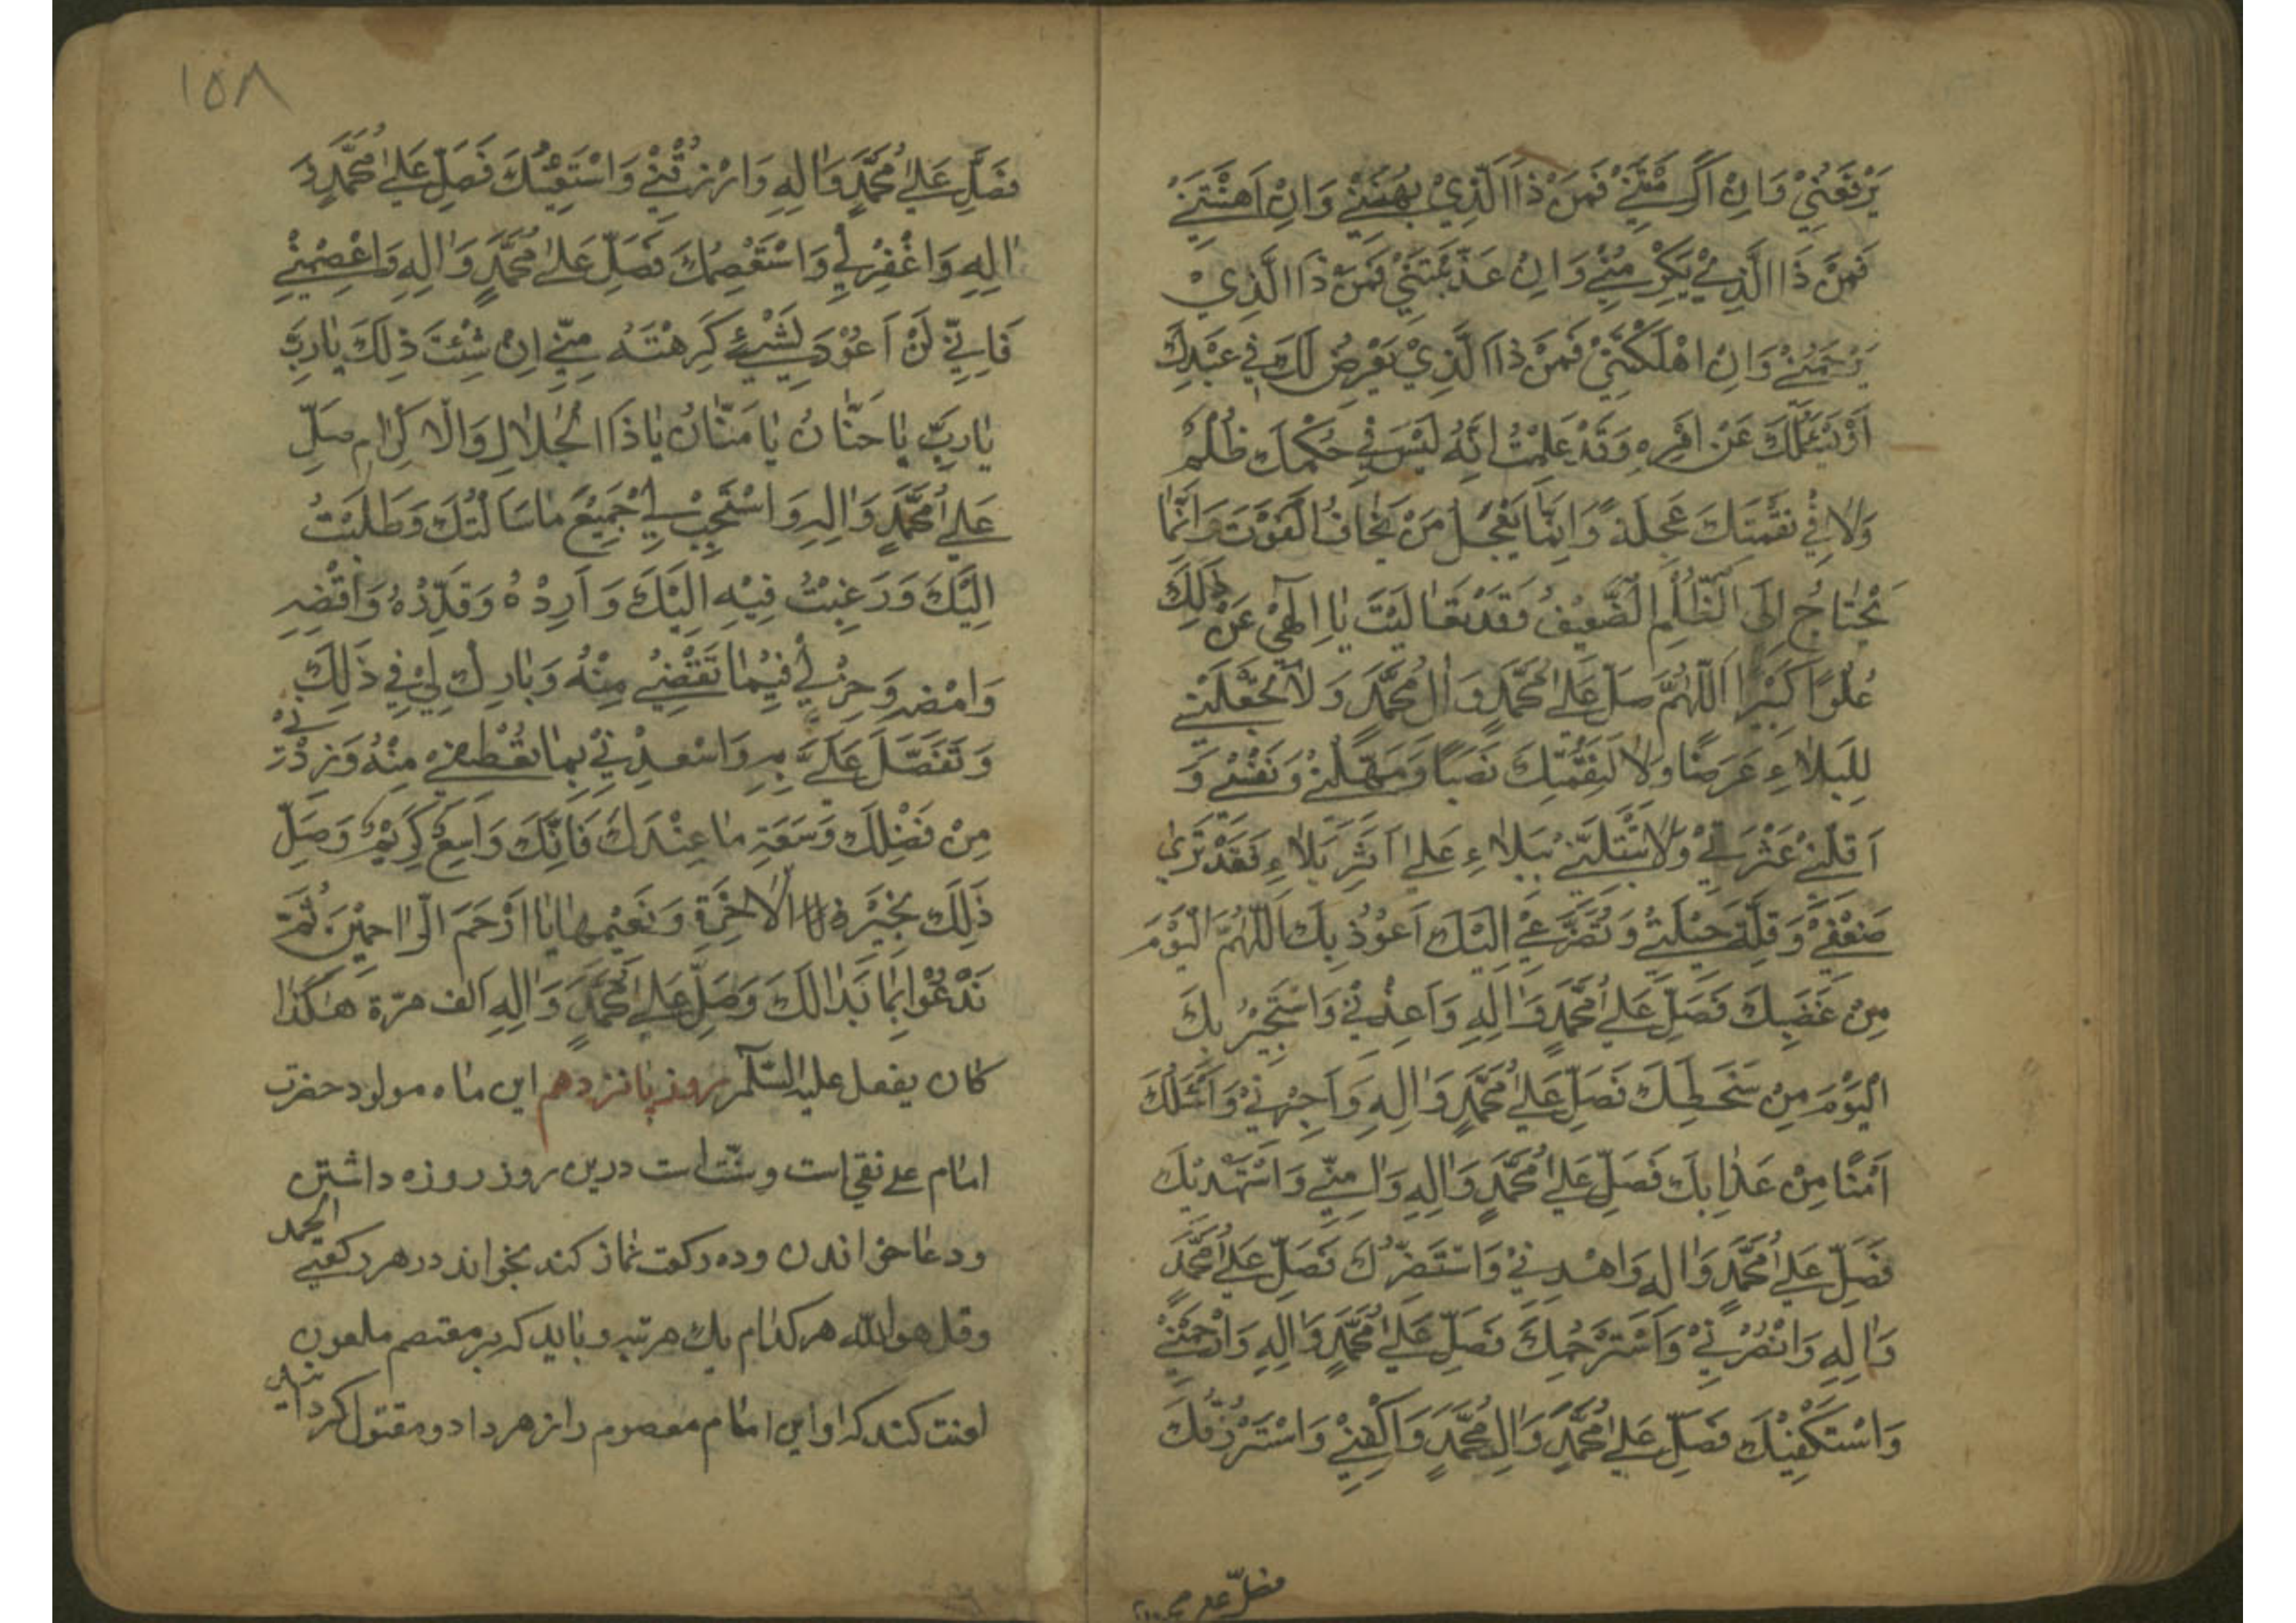 يَرْفَعُنِيْ وَاِنْ اَكْرَمْتَنِيْ فَمَنْ ذَا الَّذِيْ يُهِيْنُنِيْ وَاِنْ اَهَنْتَنِيْ
فَمَنْ ذَا الَّذِيْ يُكْرِمُنِيْ وَاِنْ عَذَّبْتَنِيْ فَمَنْ ذَا الَّذِيْ
يَرْحَمُنِيْ وَاِنْ اَهْلَكْتَنِيْ فَمَنْ ذَا الَّذِيْ يَعْرِضُ لَكَ فِيْ عَبْدِكَ
اَوْ يَسْئَلُكَ عَنْ اَمْرِهِ وَقَدْ عَلِمْتُ اَنَّهُ لَيْسَ فِيْ حُكْمِكَ ظُلْمٌ
وَلَا فِيْ نَقِمَتِكَ عَجَلَةٌ وَاِنَّمَا يَعْجَلُ مَنْ يَخَافُ الْفَوْتَ وَاِنَّمَا
يَحْتَاجُ اِلَى الظُّلْمِ الضَّعِيْفُ وَقَدْ تَعَالَيْتَ يَا اِلٰهِيْ عَنْ ذٰلِكَ
عُلُوًّا كَبِيْرًا اَللّٰهُمَّ صَلِّ عَلٰى مُحَمَّدٍ وَاٰلِ مُحَمَّدٍ وَلَا تَجْعَلْنِيْ
لِلْبَلَاءِ غَرَضًا وَلَا لِنَقِمَتِكَ نَصَبًا وَمَهِّلْنِيْ وَنَفِّسْنِيْ وَ
اَقِلْنِيْ عَثْرَتِيْ وَلَا تَبْتَلِيَنِّيْ بِبَلَاءٍ عَلٰى اَثَرِ بَلَاءٍ فَقَدْ تَرٰى
ضَعْفِيْ وَقِلَّةَ حِيْلَتِيْ وَتَضَرُّعِيْ اِلَيْكَ اَعُوْذُ بِكَ اَللّٰهُمَّ الْيَوْمَ
مِنْ غَضَبِكَ فَصَلِّ عَلٰى مُحَمَّدٍ وَاٰلِهِ وَاَعِذْنِيْ وَاَسْتَجِيْرُ بِكَ
الْيَوْمَ مِنْ سَخَطِكَ فَصَلِّ عَلٰى مُحَمَّدٍ وَاٰلِهِ وَاَجِرْنِيْ وَاَسْئَلُكَ
اَمْنًا مِنْ عَذَابِكَ فَصَلِّ عَلٰى مُحَمَّدٍ وَاٰلِهِ وَاٰمِنِّيْ وَاَسْتَهْدِيْكَ
فَصَلِّ عَلٰى مُحَمَّدٍ وَاٰلِهِ وَاهْدِنِيْ وَاَسْتَنْصِرُكَ فَصَلِّ عَلٰى مُحَمَّدٍ
وَاٰلِهِ وَانْصُرْنِيْ وَاَسْتَرْحِمُكَ فَصَلِّ عَلٰى مُحَمَّدٍ وَاٰلِهِ وَارْحَمْنِيْ
وَاَسْتَكْفِيْكَ فَصَلِّ عَلٰى مُحَمَّدٍ وَاٰلِ مُحَمَّدٍ وَاكْفِنِيْ وَاَسْتَرْزِقُكَ
فصلّ على محمد
١٥٨
فَصَلِّ عَلٰى مُحَمَّدٍ وَاٰلِهِ وَارْزُقْنِيْ وَاَسْتَعِيْنُكَ فَصَلِّ عَلٰى مُحَمَّدٍ وَ
اٰلِهِ وَاغْفِرْلِيْ وَاَسْتَعْصِمُكَ فَصَلِّ عَلٰى مُحَمَّدٍ وَاٰلِهِ وَاعْصِمْنِيْ
فَاِنِّيْ لَنْ اَعُوْدَ لِشَيْئٍ كَرِهْتَهُ مِنِّيْ اِنْ شِئْتَ ذٰلِكَ يَا رَبِّ
يَا رَبِّ يَا حَنَّانُ يَا مَنَّانُ يَا ذَا الْجَلَالِ وَالْاِكْرَامِ صَلِّ
عَلٰى مُحَمَّدٍ وَاٰلِهِ وَاسْتَجِبْ لِيْ جَمِيْعَ مَا سَاَلْتُكَ وَطَلَبْتُ
اِلَيْكَ وَرَغِبْتُ فِيْهِ اِلَيْكَ وَاَرِدْهُ وَقَدِّرْهُ وَاقْضِهِ
وَامْضِهِ وَخِرْلِيْ فِيْمَا تَقْضِيْ مِنْهُ وَبَارِكْ لِيْ فِيْ ذٰلِكَ
وَتَفَضَّلْ عَلَيَّ بِهِ وَاَسْعِدْنِيْ بِمَا تُعْطِيْنِيْ مِنْهُ وَزِدْنِيْ
مِنْ فَضْلِكَ وَسَعَةِ مَا عِنْدَكَ فَاِنَّكَ وَاسِعٌ كَرِيْمٌ وَصَلِّ
ذٰلِكَ بِخَيْرِ الْاٰخِرَةِ وَنَعِيْمِهَا يَا اَرْحَمَ الرَّاحِمِيْنَ ثُمَّ
تَدْعُوْا بِمَا بَدَا لَكَ وَصَلِّ عَلٰى مُحَمَّدٍ وَاٰلِهِ اَلف مرّة هٰكَذَا
كان يفعل عليه السّلام روز پانزدهم اين ماه مولود حضرت
امام على نقى است وسنّت است درين روز روزه داشتن
ودعا خواندن و ده ركعت نماز كند بخواند در هر ركعتى الحمد
وقل هو الله هر كدام يك مرتبه و بايد كه بر معتصم ملعون
لعنت كند كه او اين امام معصوم را زهر داد و مقتول كردانيد